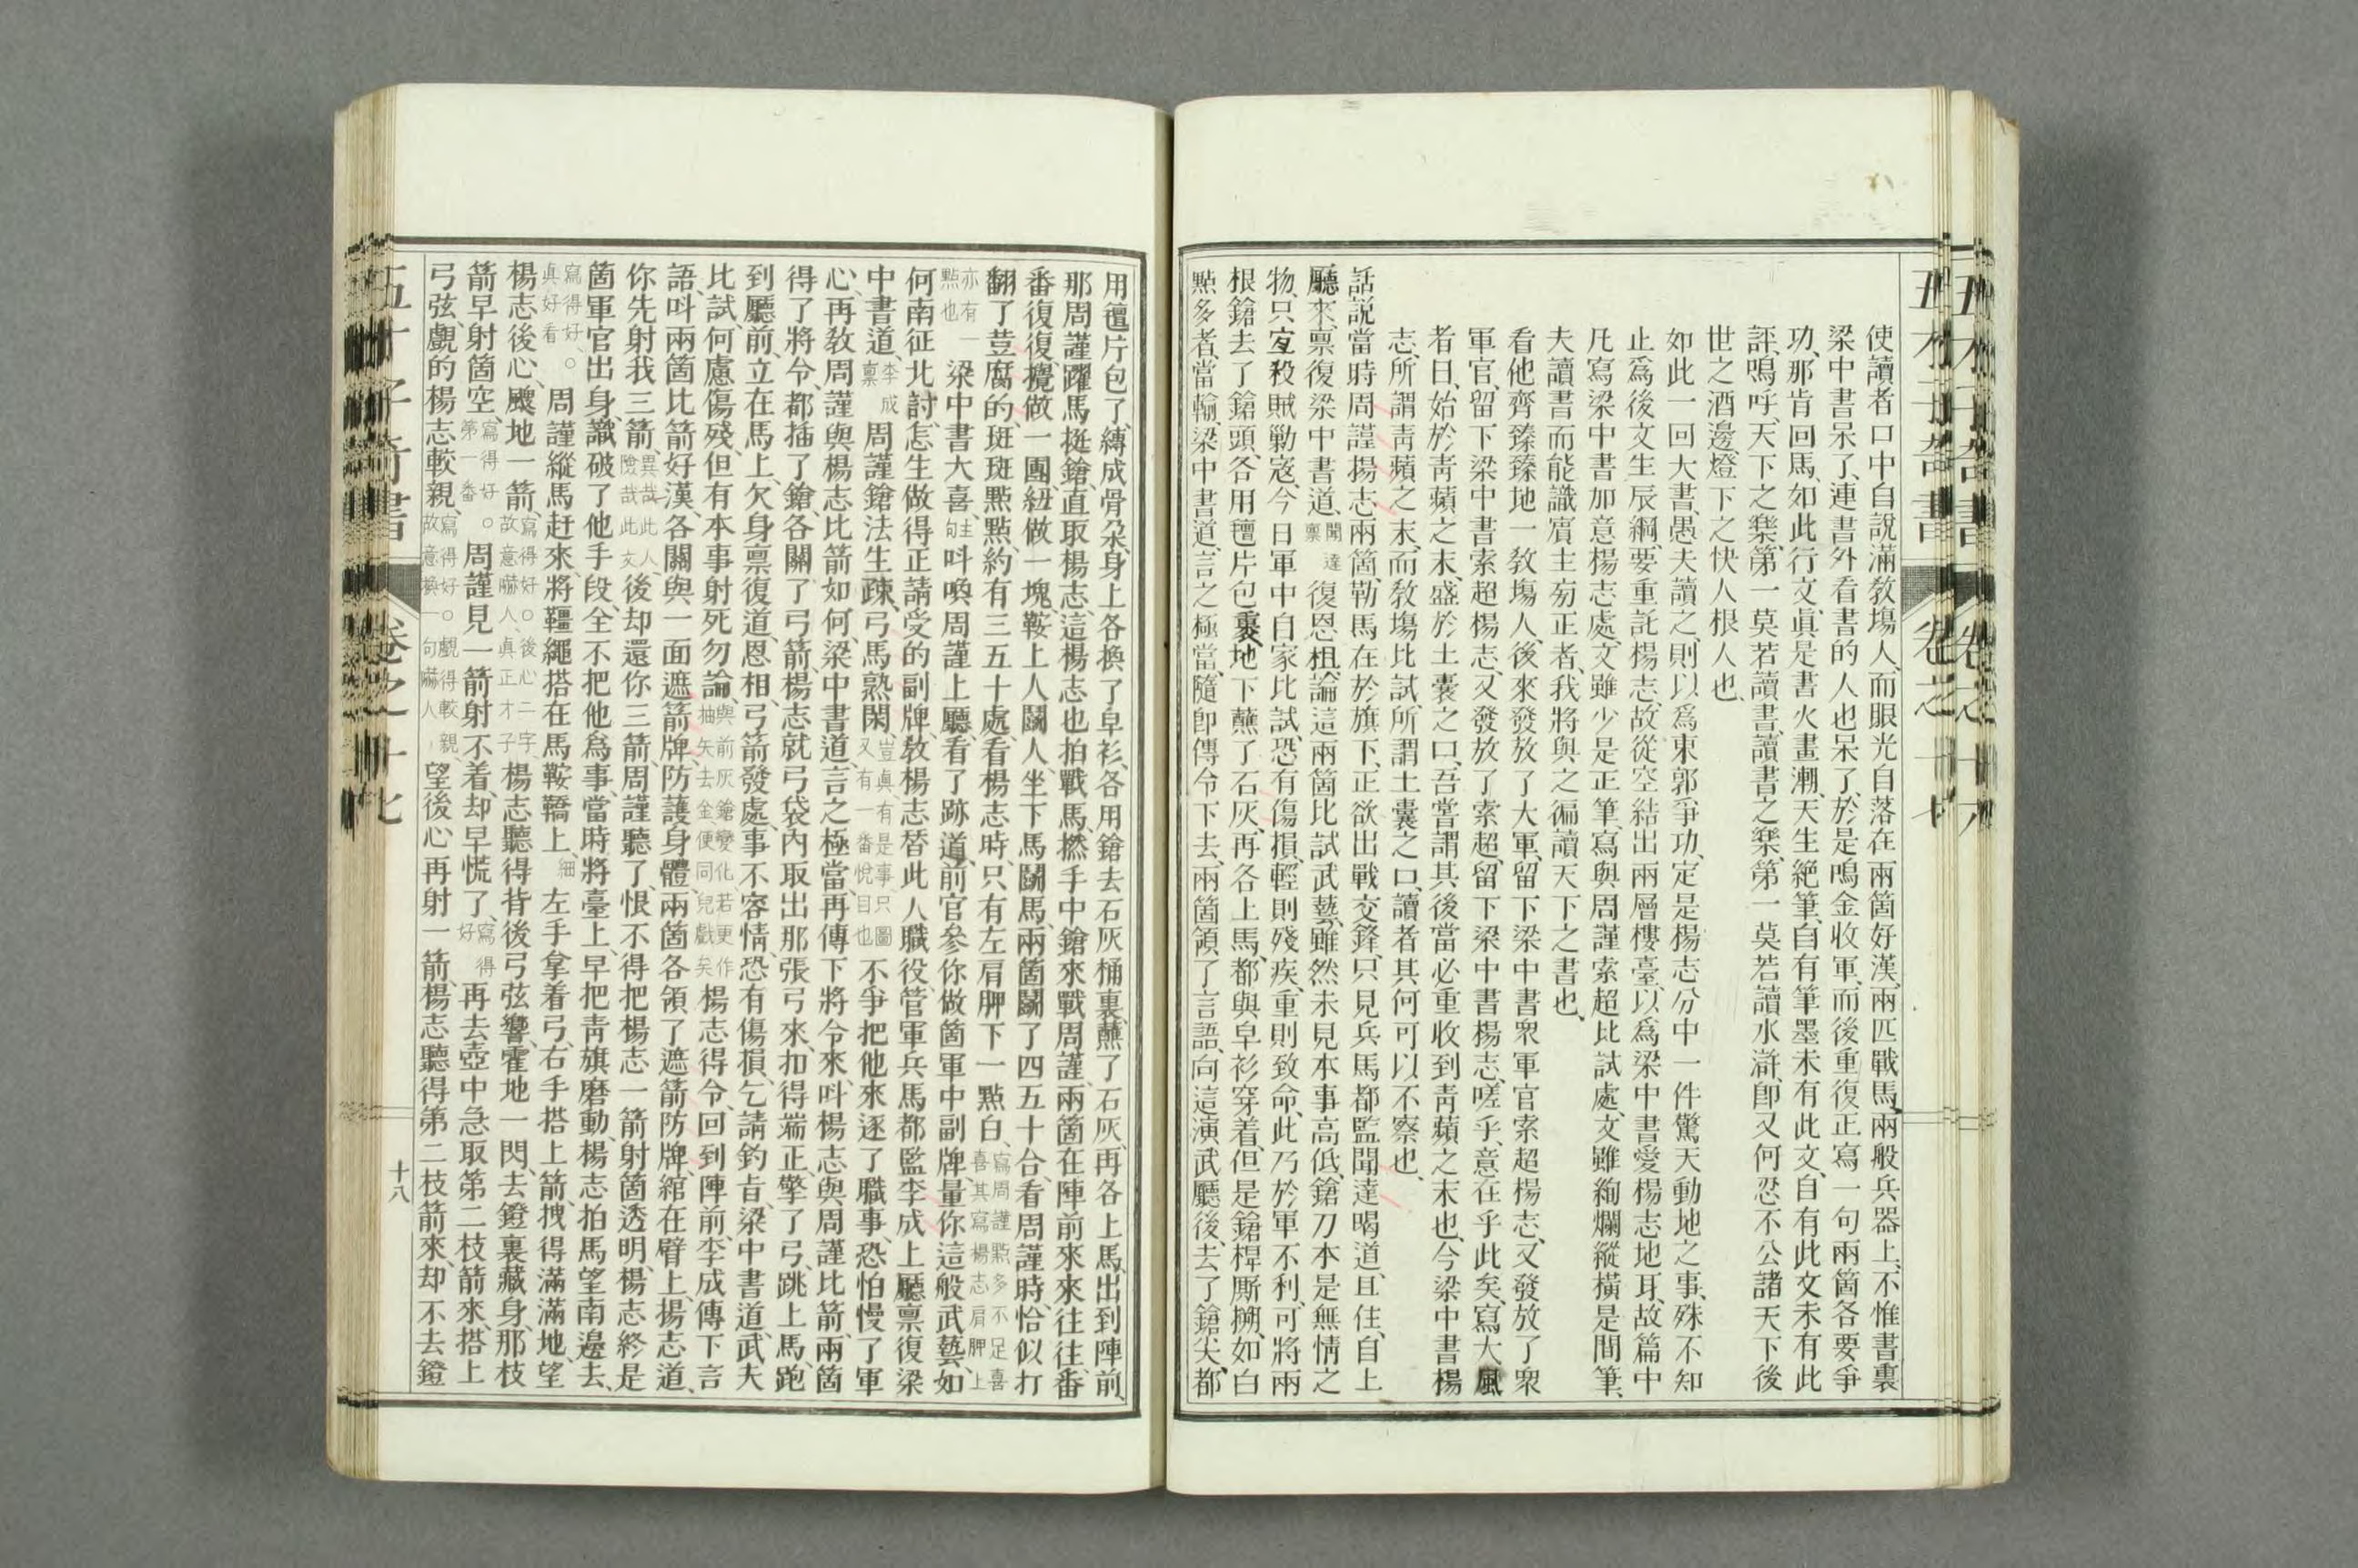 使讀者口中自說滿敎塲人、而眼光自落在兩箇好漢、兩匹戰馬、兩般兵器上、不惟書裏
梁中書呆了、連書外看書的人也呆了、於是鳴金收軍、而後重復正寫一句兩箇各要爭
功、那肯回馬、如此行文、眞是書火畫潮、天生絕筆、自有筆墨未有此文、自有此文未有此
評、嗚呼、天下之樂、第一莫若讀書、讀書之樂、第一莫若讀水滸、卽又何忍不公諸天下後
世之酒邊燈下之快人根人也、
如此一回大書、愚夫讀之、則以爲東郭爭功、定是楊志分中一件驚天動地之事、殊不知
止爲後文生辰綱、要重託楊志、故從空結出兩層樓臺、以爲梁中書愛楊志地耳、故篇中
凡寫梁中書加意楊志處、文雖少是正筆、寫與周謹索超比試處、文雖絢爛縱橫是間筆、
夫讀書而能識賓主㫄正者、我將與之徧讀天下之書也、
看他齊臻臻地一敎塲人、後來發放了大軍、留下梁中書衆軍官索超楊志、又發放了衆
軍官、留下梁中書索超楊志、又發放了索超、留下梁中書楊志、嗟乎、意在乎此矣、寫大風
者曰、始於靑蘋之末、盛於土囊之口、吾嘗謂其後當必重收到靑蘋之末也、今梁中書楊
志、所謂靑蘋之末、而敎塲比試、所謂土囊之口、讀者其何可以不察也、
話說當時周謹揚志兩箇、勒馬在於旗下、正欲出戰交鋒、只見兵馬都監聞達喝道、且住、自上
廳來、禀復梁中書道、聞達禀復恩柤、論這兩箇比試武藝、雖然未見本事高低、鎗刀本是無情之
物、只宐殺賊勦寇、今日軍中自家比試、恐有傷損、輕則殘疾、重則致命、此乃於軍不利、可將兩
根鎗去了鎗頭、各用氊片包裹、地下蘸了石灰、再各上馬、都與皁衫穿着、但是鎗桿厮搠、如白
點多者、當輸、梁中書道、言之極當、隨卽傳令下去、兩箇領了言語、向這演武廳後、去了鎗尖、都
用氊片包了、縛成骨朶、身上各換了皁衫、各用鎗去石灰桶裏蘸了石灰、再各上馬、出到陣前、
那周謹躍馬挺鎗、直取楊志、這楊志也拍戰馬、撚手中鎗來戰周謹、兩箇在陣前來來往往、番
番復復、攪做一團、紐做一塊、鞍上人鬭人、坐下馬鬭馬、兩箇鬭了四五十合、看周謹時、恰似打
翻了荳腐的、斑斑點點、約有三五十處、看楊志時、只有左肩胛下一點白、寫周謹點多不足喜喜其寫楊志肩胛上
亦有一點也梁中書大喜、主句呌喚周謹上廳、看了跡、道、前官參你做箇軍中副牌、量你這般武藝、如
何南征北討、怎生做得正請受的副牌、敎楊志替此人職役、管軍兵馬都監李成上廳禀復梁
中書道、李成禀周謹鎗法生疎、弓馬熟閑、豈眞有是事只圖又有一番悅目也不爭把他來逐了職事、恐怕慢了軍
心、再敎周謹與楊志比箭如何、梁中書道、言之極當、再傳下將令來、呌楊志與周謹比箭、兩箇
得了將令、都插了鎗、各關了弓箭、楊志就弓袋內取出那張弓來、扣得端正、擎了弓、跳上馬、跑
到廳前、立在馬上、欠身禀復道、恩相、弓箭發處、事不容情、恐有傷損、乞請鈞旨、梁中書道、武夫
比試、何慮傷殘、但有本事、射死勿論、與前灰鎗變化若更作抽矢去金便同兒戲矣楊志得令、回到陣前、李成傳下言
語、呌兩箇比箭好漢、各關與一面遮箭牌、防護身體、兩箇各領了遮箭防牌、綰在臂上、揚志道、
你先射我三箭、異哉此人險哉此文後却還你三箭、周謹聽了、恨不得把楊志一箭射箇透明、楊志終是
箇軍官出身、識破了他手段、全不把他爲事、當時將臺上、早把靑旗磨動、楊志拍馬望南邊去、
寫得好、○眞好看周謹縱馬赶來、將韁繩搭在馬鞍鞽上、細左手拿着弓、右手搭上箭、拽得滿滿地、望
楊志後心、颼地一箭、寫得好○後心二字、故意嚇人、眞正才子楊志聽得背後弓弦響、霍地一閃、去鐙裏藏身、那枝
箭早射箇空、寫得好○第一番周謹見一箭射不着、却早慌了、寫得好再去壺中急取第二枝箭來、搭上
弓弦、覷的楊志較親、寫得好○覷得較親、故意換一句嚇人望後心再射一箭、楊志聽得第二枝箭來、却不去鐙
十八